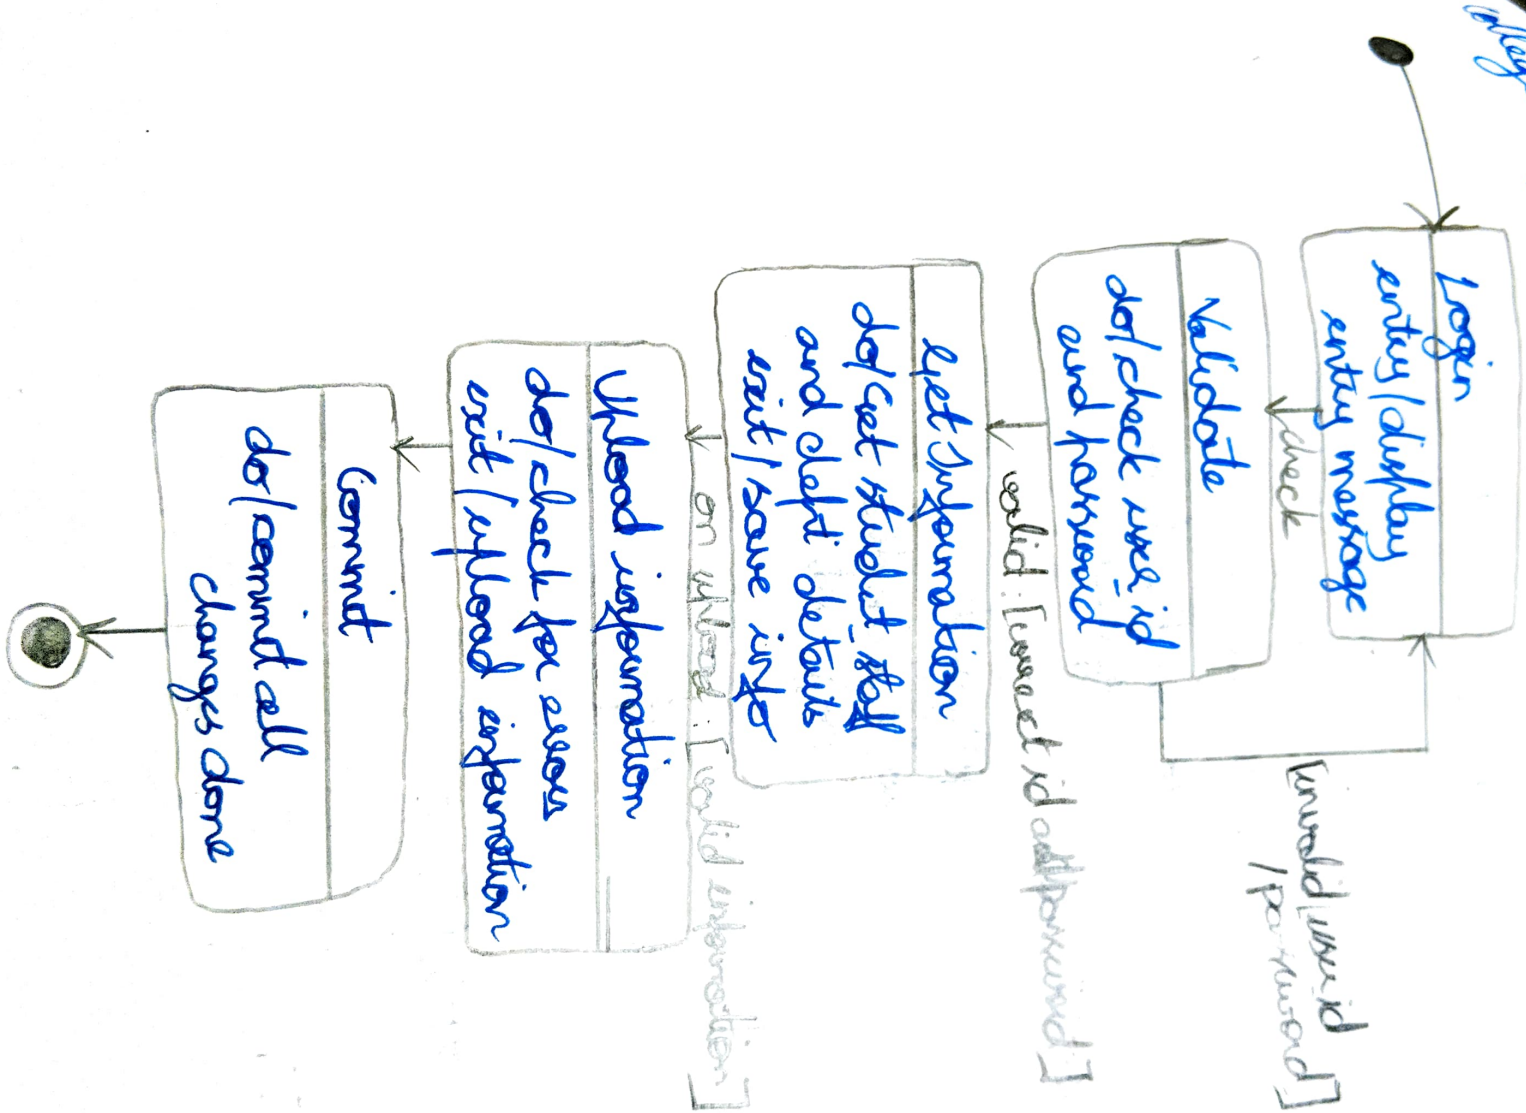 Login
entry/display
entry message
check
Validate
do/check user_id
and password
[invalid user id
/password]
valid: [correct id and password]
Get Information
do/Get student_staff
and dept details
exit/save info
on upload: [valid information]
Upload information
do/check for errors
exit/upload information
Commit
do/commit all
changes done